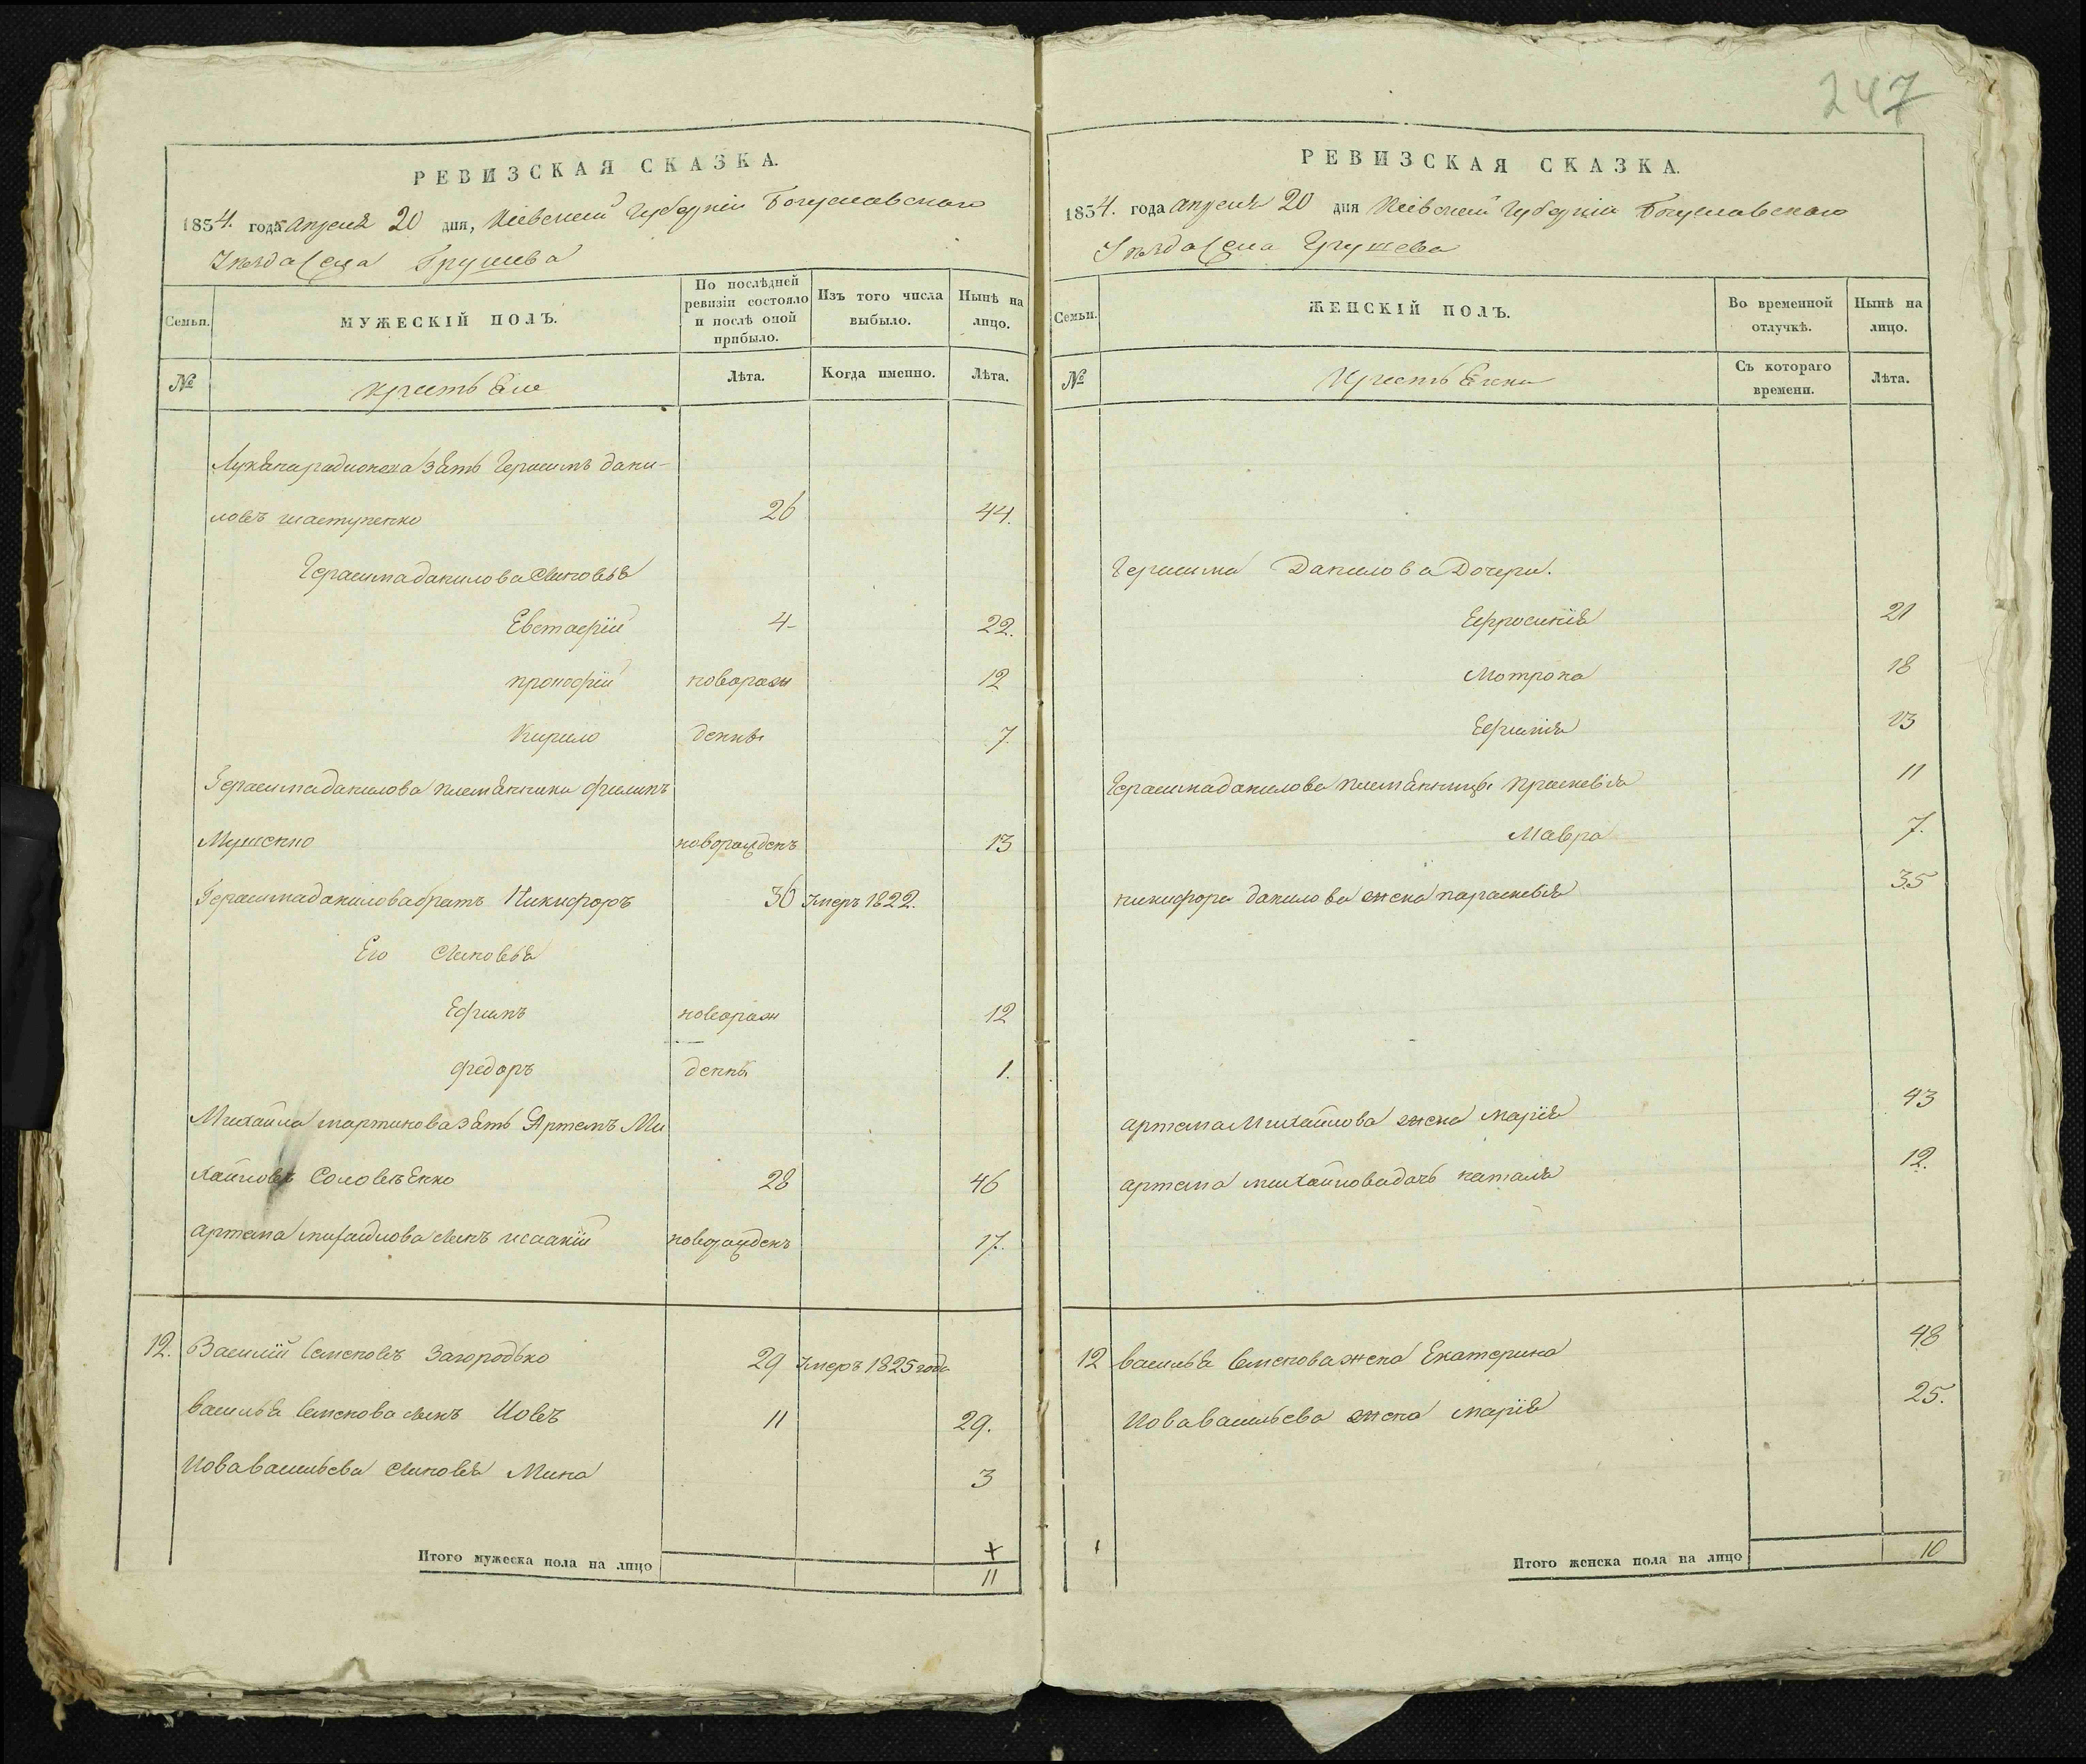 247
РЕВИЗСКАЯ СКАЗКА.
1834. года апреля 20 дня, Кіевской Губерніи Богуславского
Уезда Села Грушева
Семьи.
МУЖЕСКІЙ ПОЛЪ.
По послѣдней ревизіи состояло и послѣ оной прибыло.
Изъ того числа выбыло.
Нынѣ на лицо.
№
крестьяне
Лѣта.
Когда именно.
Лѣта.
Лукяна радионова зять Герасимъ дани-
ловъ 26 44.
Герасима данилова сыновья
Евстафій 4 22.
прокофій новорож 12
Кирило денные 7
Герасима данилова племянники филипъ
Мушенко новорожденъ 13
Герасима данилова братъ Никифоръ 36 умеръ 1822.
Его сыновья
Ефимъ новорож 12
федоръ денны 1.
Михайла мартинова зять Артемъ Ми
хайловъ Соловъенко 28 46
артема михайлова сынъ исаакій новорожденъ 17.
12. Василій Семеновъ Загородько 29 умеръ 1825 года
василья семенова сынъ Иовъ 11 29.
Иова васильева сыновья Мина 3
Итого мужеска пола на лицо 11
РЕВИЗСКАЯ СКАЗКА.
1834. года апреля 20 дня Кіевской Губерніи Богуславского
Уезда Села Грушева
Семьи.
ЖЕНСКІЙ ПОЛЪ.
Во временной отлучкѣ.
Нынѣ на лицо.
№
Крестьянки
Съ котораго времени.
Лѣта.
Герасима Данилова Дочери.
Ефросинія 21
Мотрона 18
Ефимія 13
Герасима данилова племянницы Прасковія 11
Мавра 7.
никифора данилова жена параскевія 35
артема Михайлова жена марія 43
артема михайлова дочь наталя 12.
12 василья семенова жена Екатерина 48
Иова васильева жена марія 25.
Итого женска пола на лицо 10